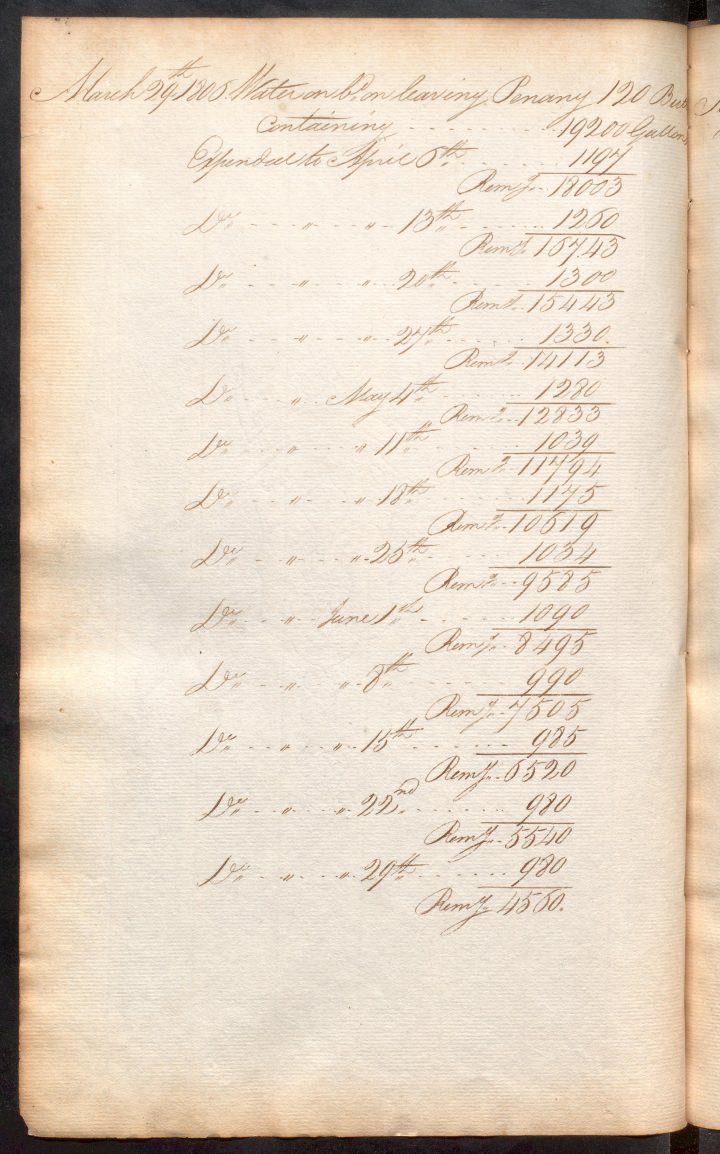 March 29th 1806. Water on bd. on leaving Penang 120 Butts
Containing 19200 Gallons
Expended to April 6th 1197
Remg. 18003
Do. " " 13th 1260
Remg. 16743
Do. " " 20th 1300
Remg. 15443
Do. " " 27th 1330
Remg. 14113
Do. " May 4th 1280
Remg. 12833
Do. " " 11th 1039
Remg. 11794
Do. " " 18th 1175
Remg. 10619
Do. " " 25th 1034
Remg. 9585
Do. " June 1th 1090
Remg. 8495
Do. " " 8th 990
Remg. 7505
Do. " " 15th 985
Remg. 6520
Do. " " 22nd 980
Remg. 5540
Do. " " 29th 980
Remg. 4560.